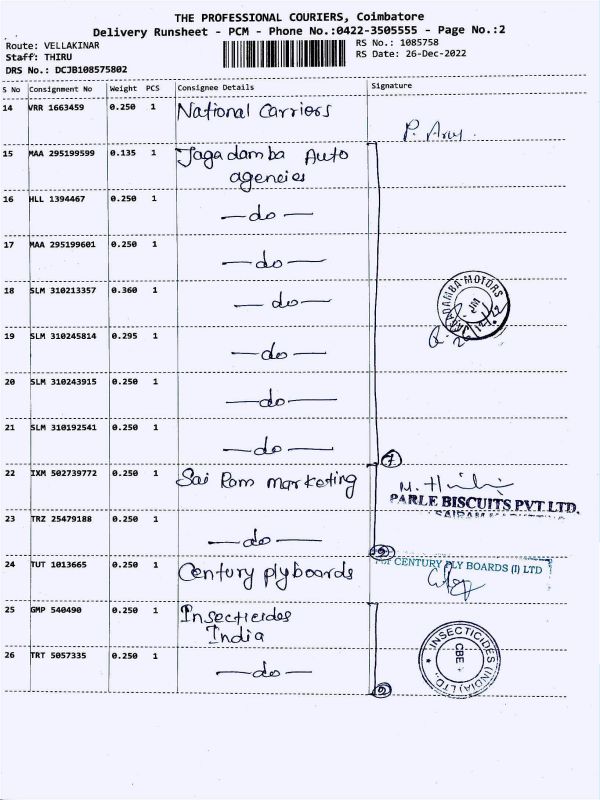 THE PROFESSIONAL COURIERS, Coimbatore
Delivery Runsheet - PCM - Phone No.:0422-3505555 - Page No.:2
Route: VELLAKINAR
RS No.: 1085758
Staff: THIRU
RS Date: 26-Dec-2022
DRS No.: DCJB108575802
S No Consignment No Weight PCS Consignee Details Signature
14 VRR 1663459 0.250 1 National Carriors
15 MAA 295199599 0.135 1 Jagadamba Auto
agencies
16 HLL 1394467 0.250 1 —do—
17 MAA 295199601 0.250 1 —do—
18 SLM 310213357 0.360 1 —do—
JAGADAMBA MOTORS
19 SLM 310245814 0.295 1 —do—
20 SLM 310243915 0.250 1 —do—
21 SLM 310192541 0.250 1 —do—
7
22 IXM 502739772 0.250 1 Sai Ram marketing
PARLE BISCUITS PVT LTD.
23 TRZ 25479188 0.250 1 —do—
24 TUT 1013665 0.250 1 Century plyboards
CENTURY PLY BOARDS (I) LTD
25 GMP 540490 0.250 1 Insecticides
India
INSECTICIDES (INDIA) LTD.
CBE
26 TRT 5057335 0.250 1 —do—
2